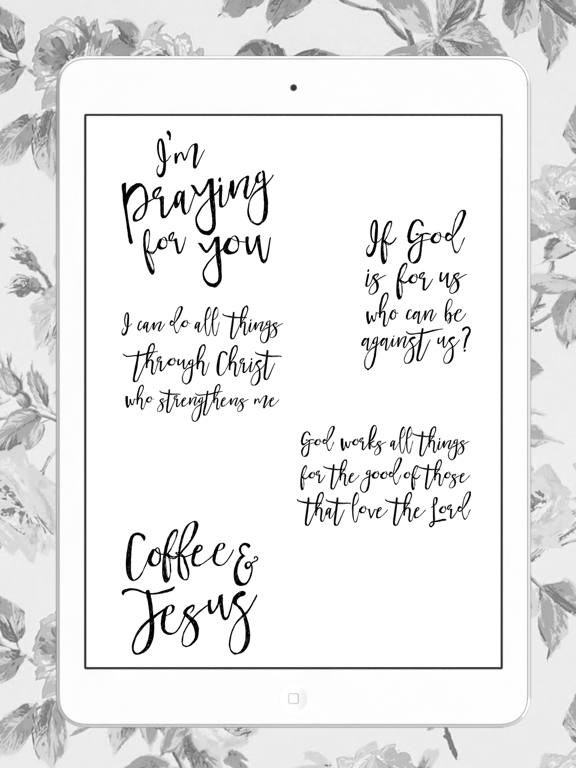 I'm
praying
for you
If God
is for us
who can be
against us?
I can do all things
through Christ
who strengthens me
God works all things
for the good of those
that love the Lord
Coffee &
Jesus